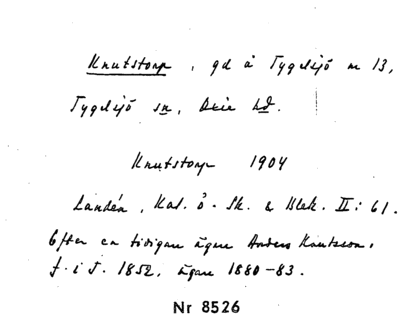 Knutstorp, gd å Tygelsjö nr 13,
Tygelsjö sn, Oxie hd.
Knutstorp 1904
Landén, Kal. ö. Sk. & Blek. II: 61.
Efter en tidigare ägare Anders Knutsson,
f. i T. 1852, ägare 1880-83.
Nr 8526